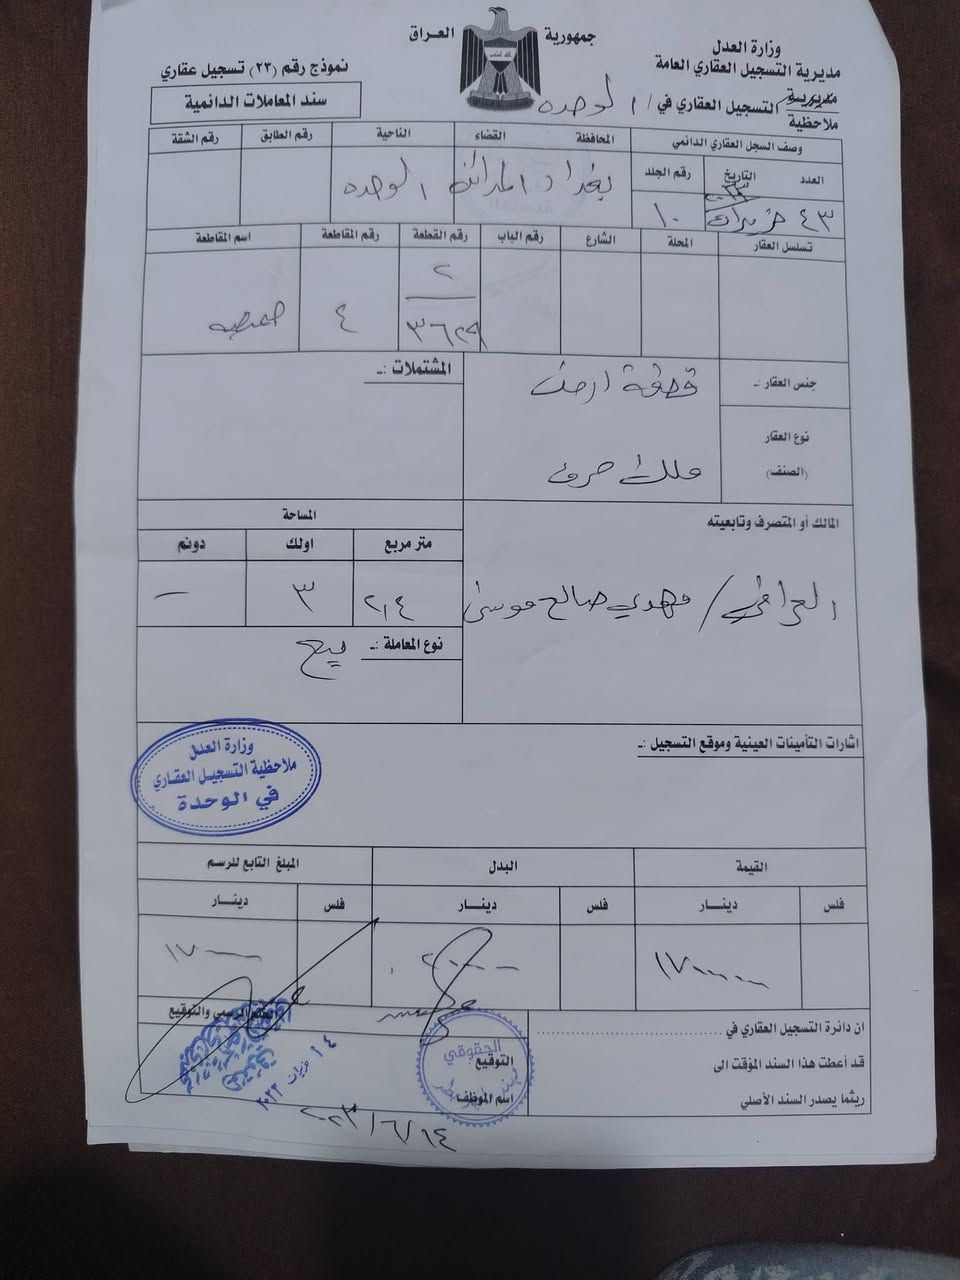 جمهورية العراق
وزارة العدل
مديرية التسجيل العقاري العامة
مديرية
ملاحظية
التسجيل العقاري في / الوحده
نموذج رقم (٢٣) تسجيل عقاري
سند المعاملات الدائمية
وصف السجل العقاري الدائمي
المحافظة القضاء الناحية رقم الطابق رقم الشقة
العدد التاريخ رقم الجلد
بغداد المدائن الوحده
٤٣ حزيران ٢٠٢٣ ١٠
تسلسل العقار المحلة الشارع رقم الباب رقم القطعة رقم المقاطعة اسم المقاطعة
٢
٣٦٢٩ ٤
جنس العقار :ـ قطعة ارض
المشتملات :ـ
نوع العقار
(الصنف) ملك صرف
المالك أو المتصرف وتابعيته
المساحة
متر مربع اولك دونم
العراقي / مهدي صالح موسى
٢,٤ ٣ –
نوع المعاملة :ـ بيع
اشارات التأمينات العينية وموقع التسجيل :ـ
وزارة العدل
ملاحظية التسجيل العقاري
في الوحدة
القيمة البدل المبلغ التابع للرسم
فلس دينـــار فلس دينـــار فلس دينـــار
الختم الرسمي والتوقيع
ان دائرة التسجيل العقاري في
قد أعطت هذا السند المؤقت الى
ريثما يصدر السند الأصلي
الحقوقي
التوقيع
اسم الموظف
١٤ حزيران ٢٠٢٣
٢٠٢٣/٦/١٤